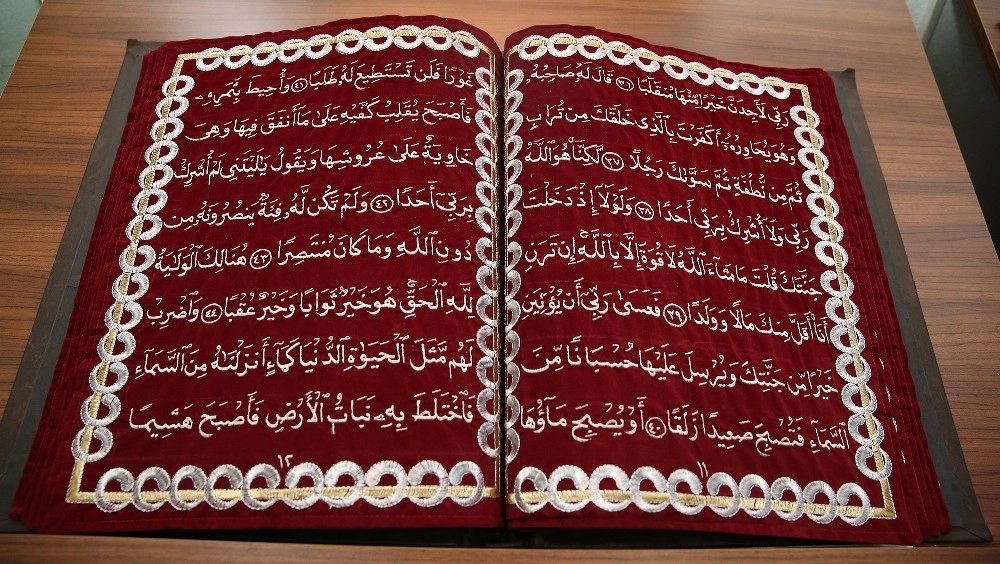 رَبِّى لَأَجِدَنَّ خَيْرًا مِّنْهَا مُنقَلَبًا ٣٦ قَالَ لَهُۥ صَاحِبُهُۥ
وَهُوَ يُحَاوِرُهُۥٓ أَكَفَرْتَ بِٱلَّذِى خَلَقَكَ مِن تُرَابٍ
ثُمَّ مِن نُّطْفَةٍ ثُمَّ سَوَّىٰكَ رَجُلًا ٣٧ لَّٰكِنَّا۠ هُوَ ٱللَّهُ
رَبِّى وَلَآ أُشْرِكُ بِرَبِّىٓ أَحَدًا ٣٨ وَلَوْلَآ إِذْ دَخَلْتَ
جَنَّتَكَ قُلْتَ مَا شَآءَ ٱللَّهُ لَا قُوَّةَ إِلَّا بِٱللَّهِ ۚ إِن تَرَنِ
أَنَا۠ أَقَلَّ مِنكَ مَالًا وَوَلَدًا ٣٩ فَعَسَىٰ رَبِّىٓ أَن يُؤْتِيَنِ
خَيْرًا مِّن جَنَّتِكَ وَيُرْسِلَ عَلَيْهَا حُسْبَانًا مِّنَ
ٱلسَّمَآءِ فَتُصْبِحَ صَعِيدًا زَلَقًا ٤٠ أَوْ يُصْبِحَ مَآؤُهَا
١١
غَوْرًا فَلَن تَسْتَطِيعَ لَهُۥ طَلَبًا ٤١ وَأُحِيطَ بِثَمَرِهِۦ
فَأَصْبَحَ يُقَلِّبُ كَفَّيْهِ عَلَىٰ مَآ أَنفَقَ فِيهَا وَهِىَ
خَاوِيَةٌ عَلَىٰ عُرُوشِهَا وَيَقُولُ يَٰلَيْتَنِى لَمْ أُشْرِكْ
بِرَبِّىٓ أَحَدًا ٤٢ وَلَمْ تَكُن لَّهُۥ فِئَةٌ يَنصُرُونَهُۥ مِن
دُونِ ٱللَّهِ وَمَا كَانَ مُنتَصِرًا ٤٣ هُنَالِكَ ٱلْوَلَٰيَةُ
لِلَّهِ ٱلْحَقِّ ۚ هُوَ خَيْرٌ ثَوَابًا وَخَيْرٌ عُقْبًا ٤٤ وَٱضْرِبْ
لَهُم مَّثَلَ ٱلْحَيَوٰةِ ٱلدُّنْيَا كَمَآءٍ أَنزَلْنَٰهُ مِنَ ٱلسَّمَآءِ
فَٱخْتَلَطَ بِهِۦ نَبَاتُ ٱلْأَرْضِ فَأَصْبَحَ هَشِيمًا
١٢